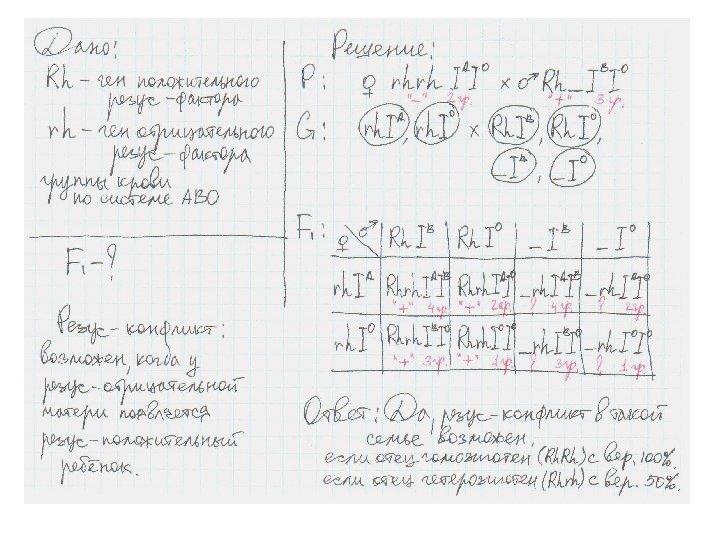 Дано:
Rh – ген положительного
резус-фактора
rh – ген отрицательного
резус-фактора
группы крови
по системе АВО
F₁ – ?
Резус-конфликт:
возможен, когда у
резус-отрицательной
матери появляется
резус-положительный
ребёнок.
Решение:
P: ♀ rhrh IᴬI⁰ × ♂ Rh_ IᴮI⁰
"–" 2 гр. "+" 3 гр.
G: rhIᴬ, rhI⁰ × RhIᴮ, RhI⁰,
_Iᴮ, _I⁰
F₁: ♀ \ ♂ RhIᴮ RhI⁰ _Iᴮ _I⁰
rhIᴬ RhrhIᴬIᴮ RhrhIᴬI⁰ _rhIᴬIᴮ _rhIᴬI⁰
"+" 4 гр. "+" 2 гр. ? 4 гр. ? 2 гр.
rhI⁰ RhrhIᴮI⁰ RhrhI⁰I⁰ _rhIᴮI⁰ _rhI⁰I⁰
"+" 3 гр. "+" 1 гр. ? 3 гр. ? 1 гр.
Ответ: Да, резус-конфликт в такой
семье возможен,
если отец гомозиготен (RhRh) с вер. 100%,
если отец гетерозиготен (Rhrh) с вер. 50%.